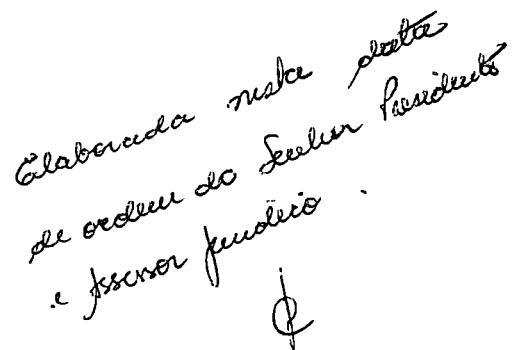 Elaborada nesta data
de ordem do Senhor Presidente
e Assessor Jurídico.